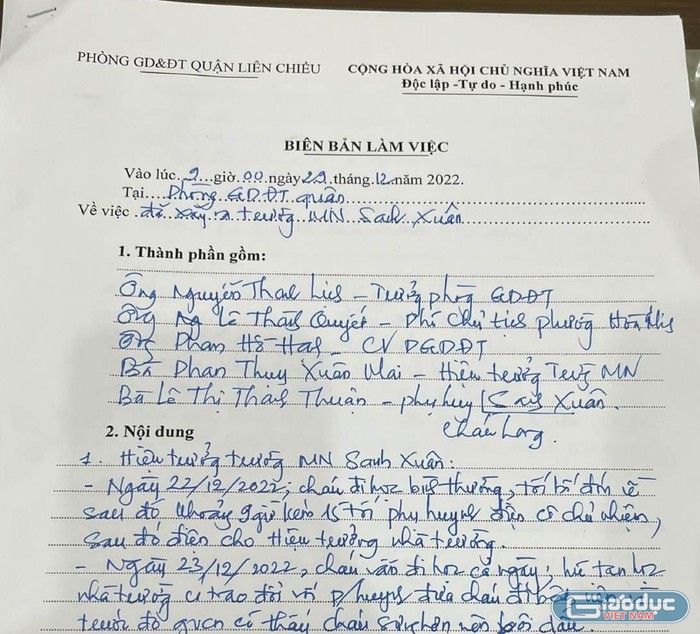 PHÒNG GD&ĐT QUẬN LIÊN CHIỂU
CỘNG HÒA XÃ HỘI CHỦ NGHĨA VIỆT NAM
Độc lập -Tự do - Hạnh phúc
BIÊN BẢN LÀM VIỆC
Vào lúc 9 giờ 00 ngày 29 tháng 12 năm 2022.
Tại Phòng GDĐT quận
Về việc đã xảy ra trường MN Sanh Xuân
1. Thành phần gồm:
Ông Nguyễn Thanh Lịch - Trưởng phòng GDĐT
Ông Ng Lê Thành Quyết - Phó Chủ tịch phường Hòa
Ông Phan Hồ Hạ - CV PGDĐT
Bà Phan Thụy Xuân Mai - Hiệu trưởng Trường MN
Bà Lê Thị Thanh Thuận - phụ huy Sanh Xuân.
cháu Long.
2. Nội dung
1. Hiệu trưởng trường MN Sanh Xuân:
- Ngày 22/12/2022; cháu đi học bình thường, tối bố đón về
sau đó khoảng 9 giờ kém 15 tối phụ huynh điện cô chủ nhiệm,
sau đó điện cho Hiệu trưởng nhà trường.
- Ngày 23/12/2022, cháu vẫn đi học cả ngày; lúc tan học
nhà trường có trao đổi với phụ huynh đưa cháu đi
trước đó gvcn có thấy cháu
Giáo dục
VIỆT NAM